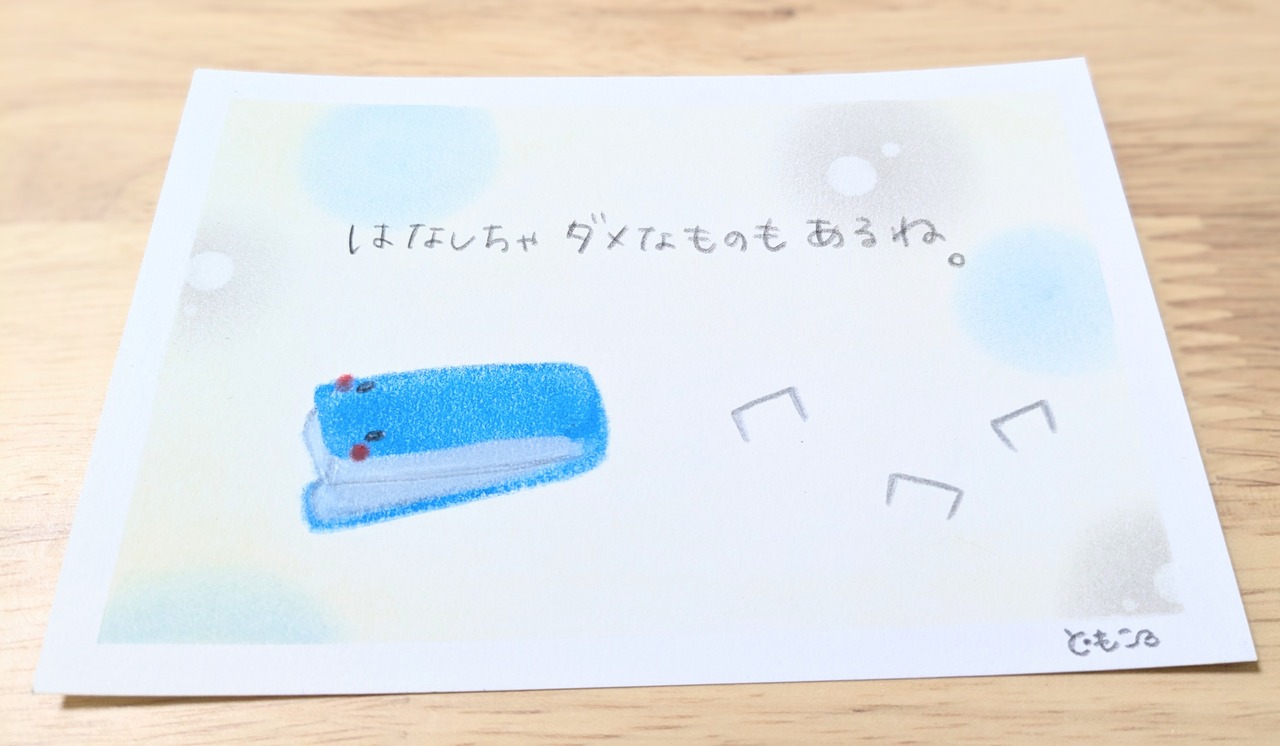 はなしちゃ ダメなものも あるね。
ともころ